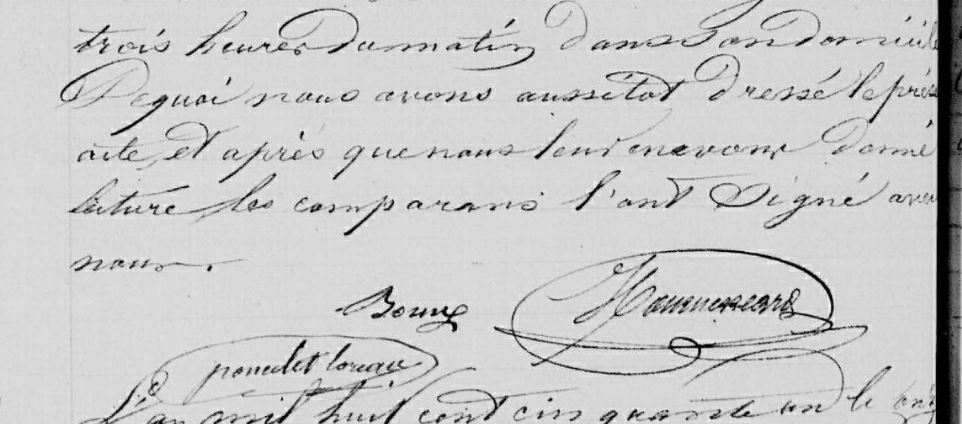 trois heures du matin dans son domicile
De quoi nous avons aussitot dressé le prése
acte, et aprés que nous leur en avons donné
lecture, les comparans l'ont signé avec
nous.
Bourg
poncelet
L'an mil huit cent cinquante un le onz